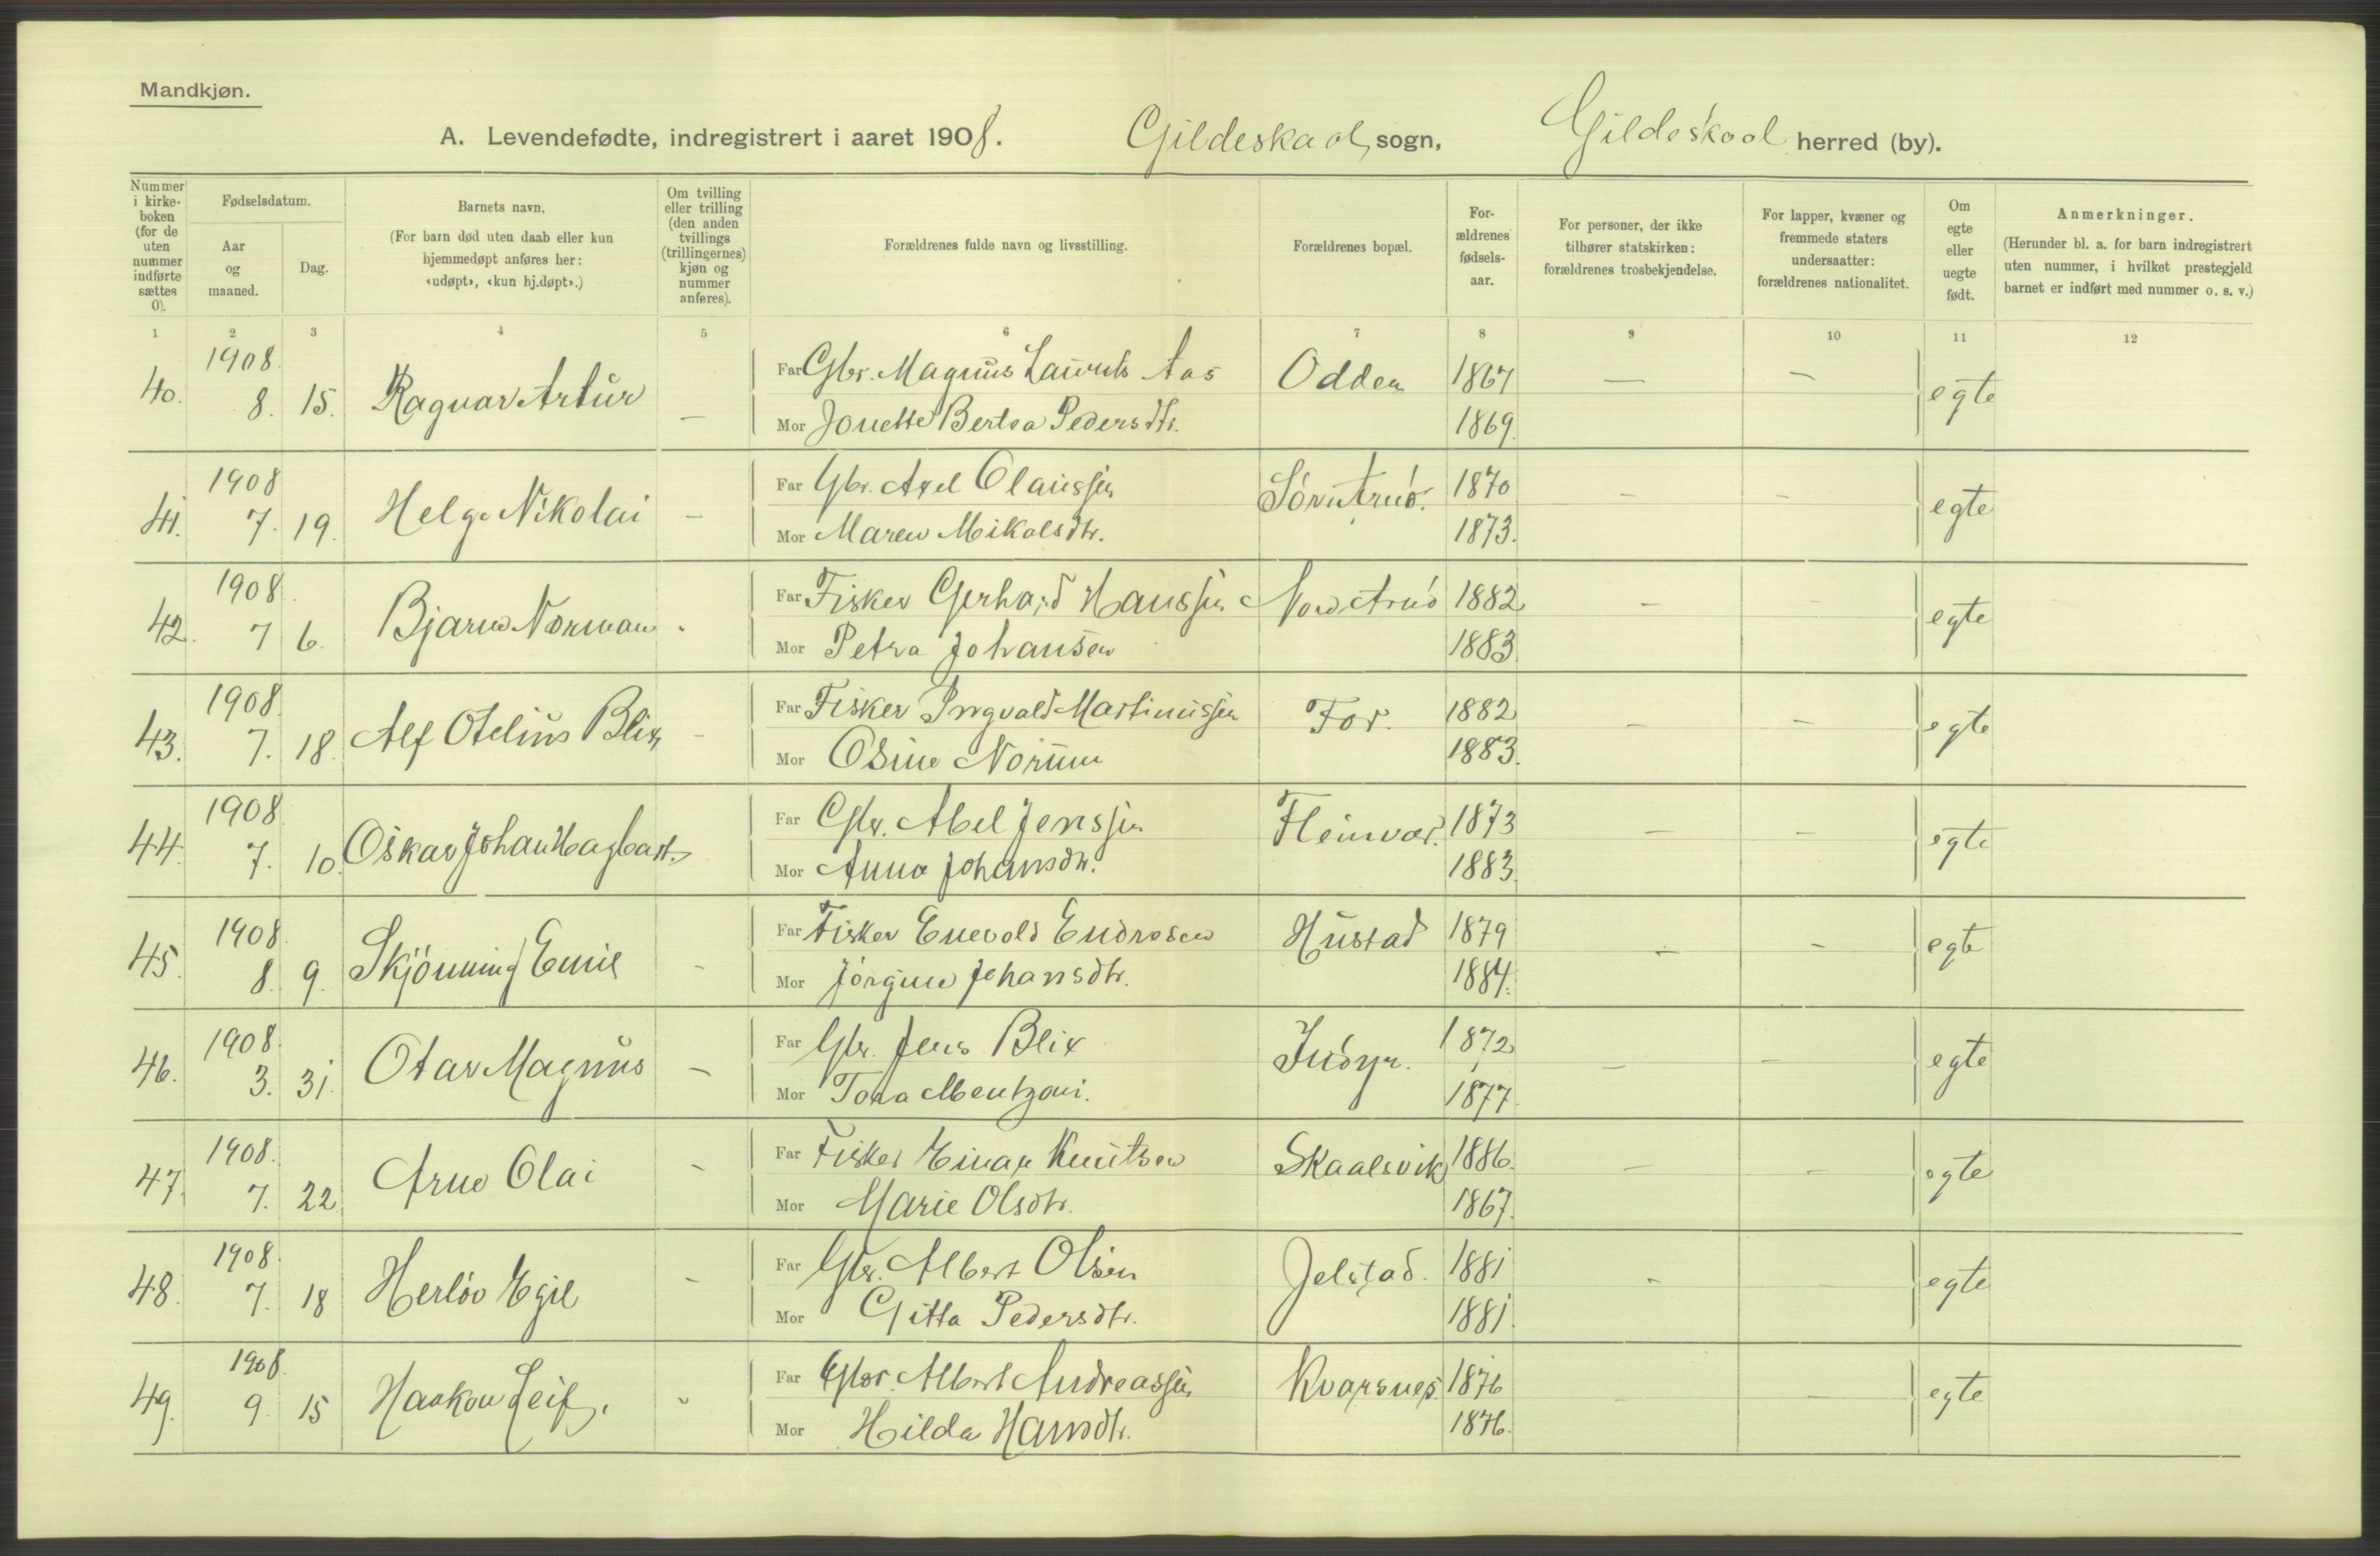 Mandkjøn.
A. Levendefødte, indregistrert i aaret 1908. Gildeskaal sogn, Gildeskaal herred (by).
Nummer i kirkeboken (for de uten nummer indførte sættes 0). Fødselsdatum. Aar og maaned. Dag. Barnets navn. (For barn død uten daab eller kun hjemmedøpt anføres her: «udøpt», «kun hj.døpt».) Om tvilling eller trilling (den anden tvillings (trillingernes) kjøn og nummer anføres). Forældrenes fulde navn og livsstilling. Forældrenes bopæl. Forældrenes fødselsaar. For personer, der ikke tilhører statskirken: forældrenes trosbekjendelse. For lapper, kvæner og fremmede staters undersaatter: forældrenes nationalitet. Om egte eller uegte født. Anmerkninger. (Herunder bl. a. for barn indregistrert uten nummer, i hvilket prestegjeld barnet er indført med nummer o. s. v.)
1 2 3 4 5 6 7 8 9 10 11 12
40. 1908. 8. 15. Ragnar Artur — Far Gbr. Magnus Laurits Aas Odden 1867 — — egte
Mor Jonette Bertea Pedersdtr. 1869.
41. 1908 7. 19. Helge Nikolai — Far Gbr. Axel Olaussen SörnArnö. 1870 — — egte
Mor Maren Mikalsdtr. 1873.
42. 1908. 7 6. Bjarne Norman - Far Fisker Gerhard Hanssen NordArnö 1882 — — egte
Mor Petra Johansen 1883.
43. 1908. 7. 18. Alf Otelius Blix - Far Fisker Ingvald Martinussen For. 1882 — — egte
Mor Osine Norum 1883.
44. 1908. 7. 10. Oskar Johan Hagbart. Far Gbr. Abel Jenssen Fleinvær. 1873 — — egte
Mor Anna Johansdtr. 1883.
45. 1908. 8. 9. Skjönning Emil - Far Fisker Enevold Endresen Hustad 1879 - - egte
Mor Jörgine Johansdtr. 1884.
46. 1908. 3. 31. Otar Magnus — Far Gbr. Jens Blix Indyr. 1872 — — egte
Mor Tora Mentzoni. 1877.
47. 1908. 7. 22 Arne Olai - Far Fisker Einar Knutsen Skaalsvik 1886. — - egte
Mor Marie Olsdtr. 1867.
48. 1908. 7. 18 Herlöv Egil - Far Gbr. Albert Olsen Jelstad. 1881 - - egte
Mor Gitta Pedersdtr. 1881.
49. 1908. 9. 15 Haakon Leif. - Far Gbr. Albert Andreassen Kvarsnes. 1876 - — egte
Mor Hilda Hansdtr. 1876.